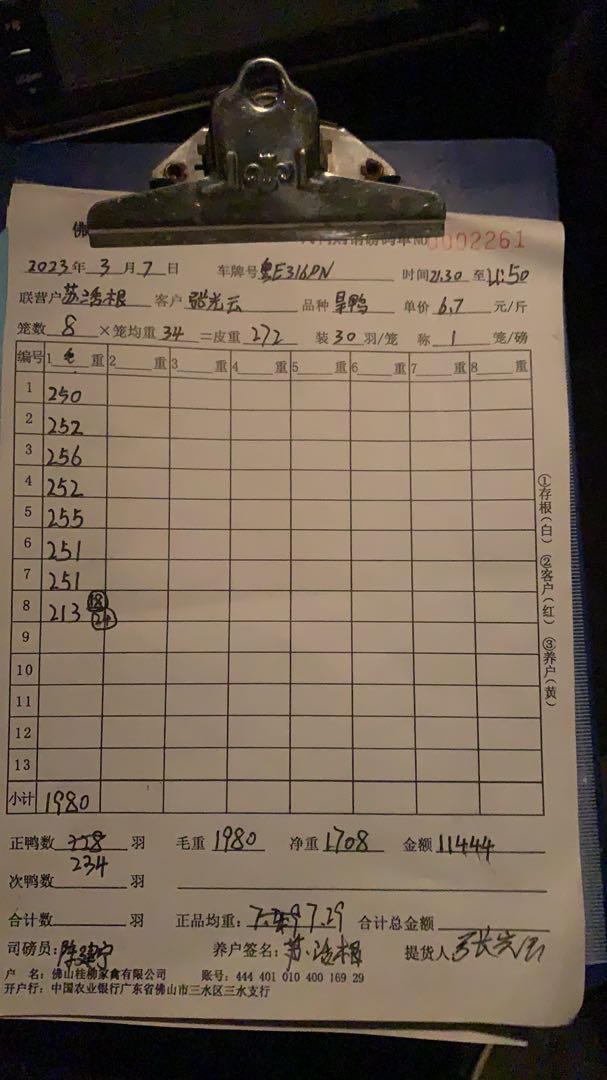 佛
0002261
2023年 3 月 7 日 车牌号 粤E316PN 时间 21:30 至 21:50
联营户 苏浩根 客户 张光云 品种 旱鸭 单价 6.7 元/斤
笼数 8 ×笼均重 34 =皮重 272 装 30 羽/笼 称 1 笼/磅
编号 1 毛 重 2 重 3 重 4 重 5 重 6 重 7 重 8 重
1 250
2 252
3 256
4 252
5 255
6 251
7 251
8 213 18 24
9
10
11
12
13
小计 1980
①存根(白) ②客户(红) ③养户(黄)
正鸭数 羽 毛重 1980 净重 1708 金额 11444
234
次鸭数 羽
合计数 羽 正品均重: 7.29 合计总金额
司磅员: 陈建宁 养户签名: 苏浩根 提货人 张光云
户 名: 佛山桂柳家禽有限公司 账号: 444 401 010 400 169 29
开户行: 中国农业银行广东省佛山市三水区三水支行